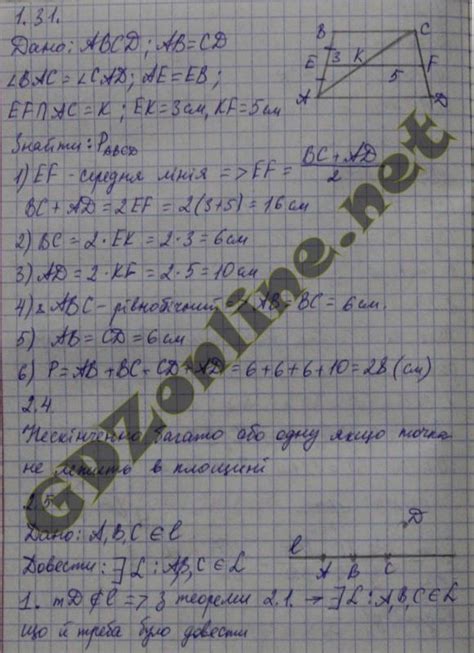 1.31.
Дано: ABCD; AB=CD
∠BAC=∠CAD; AE=EB;
EF∩AC=K; EK=3см, KF=5см
Знайти: P_ABCD
1) EF - середня лінія => EF = (BC+AD)/2
BC+AD=2EF=2(3+5)=16см
2) BC=2·EK=2·3=6см
3) AD=2·KF=2·5=10см
4) ABC - рівнобічний => AB=BC=6см.
5) AB=CD=6см
6) P=AB+BC+CD+AD=6+6+6+10=28(см)
2.4.
Нескінченно багато або одну якщо точка
не лежить в площині
2.5
Дано: A,B,C∈l
Довести: ∃L: A,B,C∈L
1. тD∉l => з теореми 2.1. → ∃L: A,B,C∈L
що й треба було довести
B C
E 3 K 5 F
A D
D
l
A B C
GDZonline.net